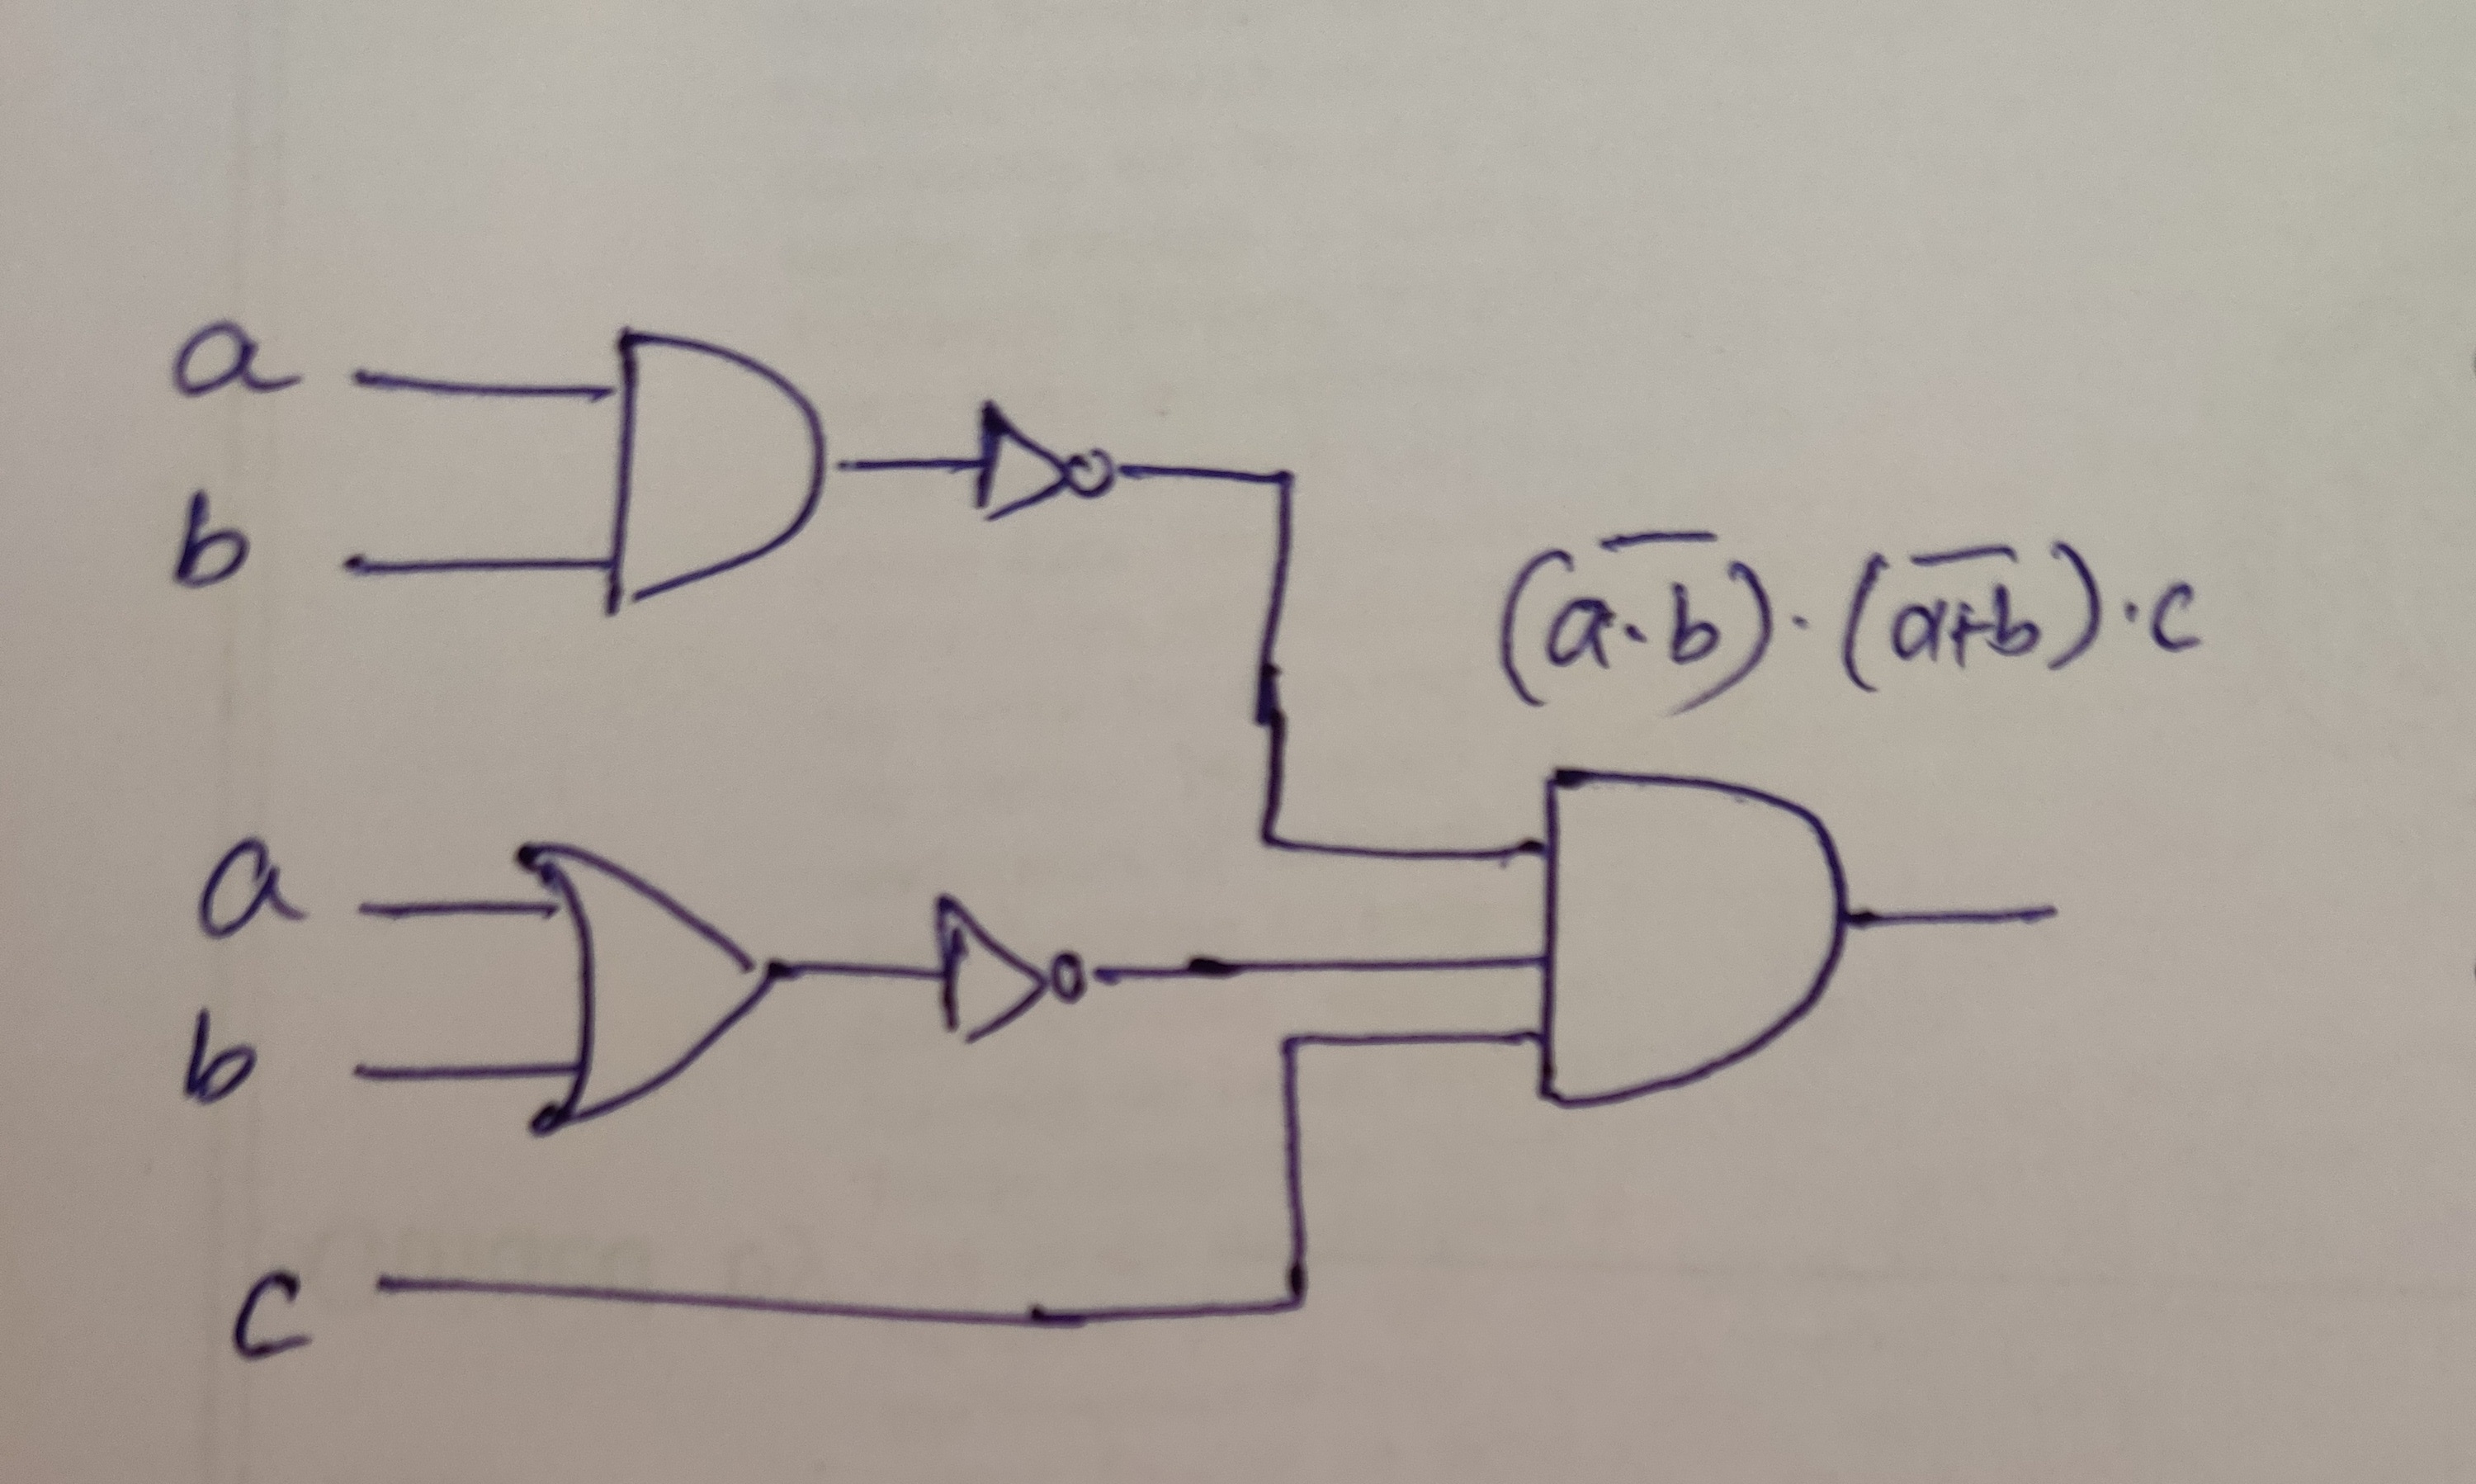 a
b
(a̅.̅b̅).(a̅+̅b̅).c
a
b
c